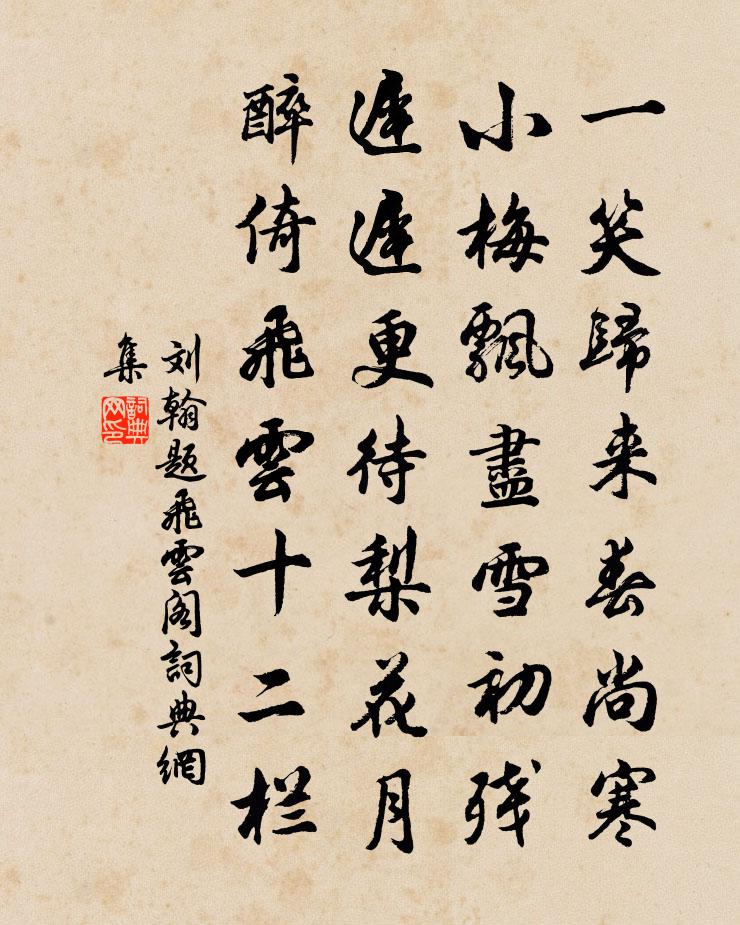 一笑歸来春尚寒
小梅飄盡雪初残
遅遅更待梨花月
醉倚飛雲十二栏
刘翰题飛雲阁詞典網
集
詞典
网印